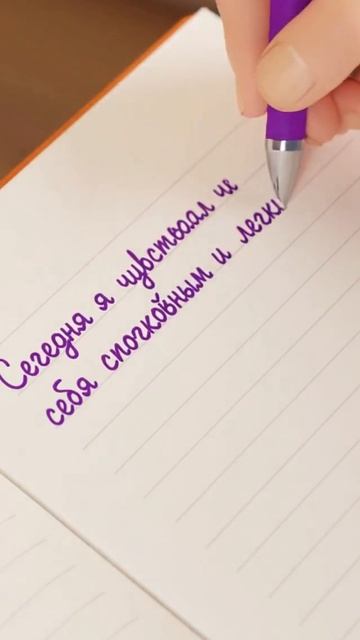 Сегодня я чувстваал че
себя спочкобным и легки